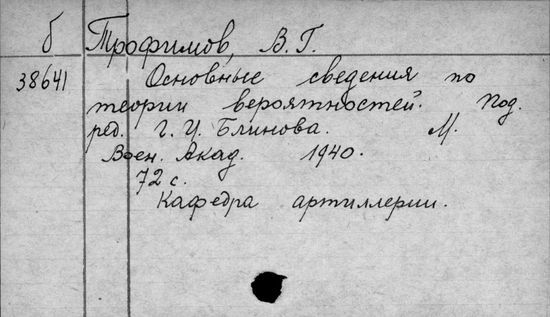 б Трофимов, В. Г.
38641 Основные сведения по
теории вероятностей. Под.
ред. Г. И. Блинова. М.
Воен. Акад. 1940.
72 с.
Кафедра артиллерии.